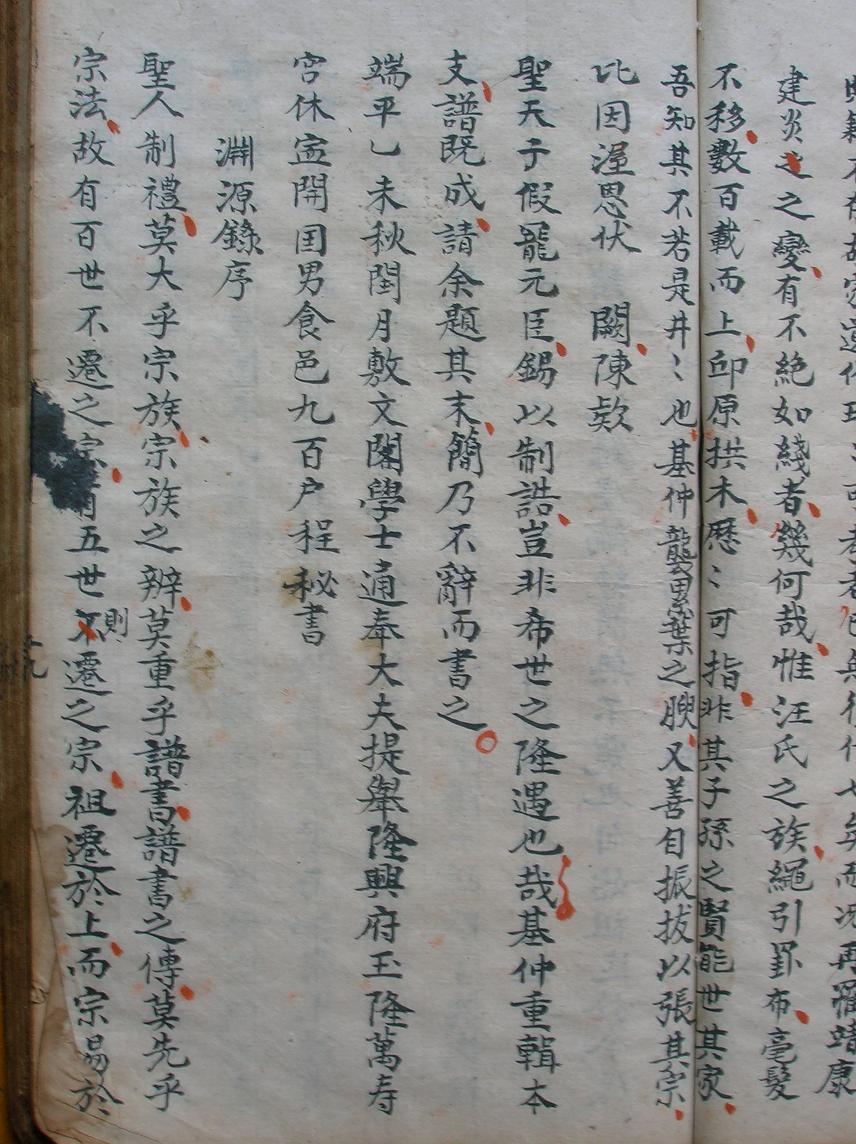 典籍不存故家遺俗班〻可考者已無彷什七矣而況再罹靖康
建炎之之變有不絶如綫者幾何哉惟汪氏之族繩引罫布毫髮
不移數百載而上邱原拱木歷〻可指非其子孫之賢能世其家
吾知其不若是井〻也基仲襲累葉之腴又善自振拔以張其宗
比因渥恩伏 闕陳欵
聖天子假寵元臣錫以制誥豈非希世之隆遇也哉基仲重輯本
支譜既成請余題其末簡乃不辭而書之
端平乚未秋閏月敷文閣學士通奉大夫提舉隆興府玉隆萬寿
宮休寍開囯男食邑九百户程秘書
淵源錄序
聖人制禮莫大乎宗族宗族之辨莫重乎譜書譜書之傳莫先乎
宗法故有百世不遷之宗有五世則遷之宗祖遷於上而宗易於